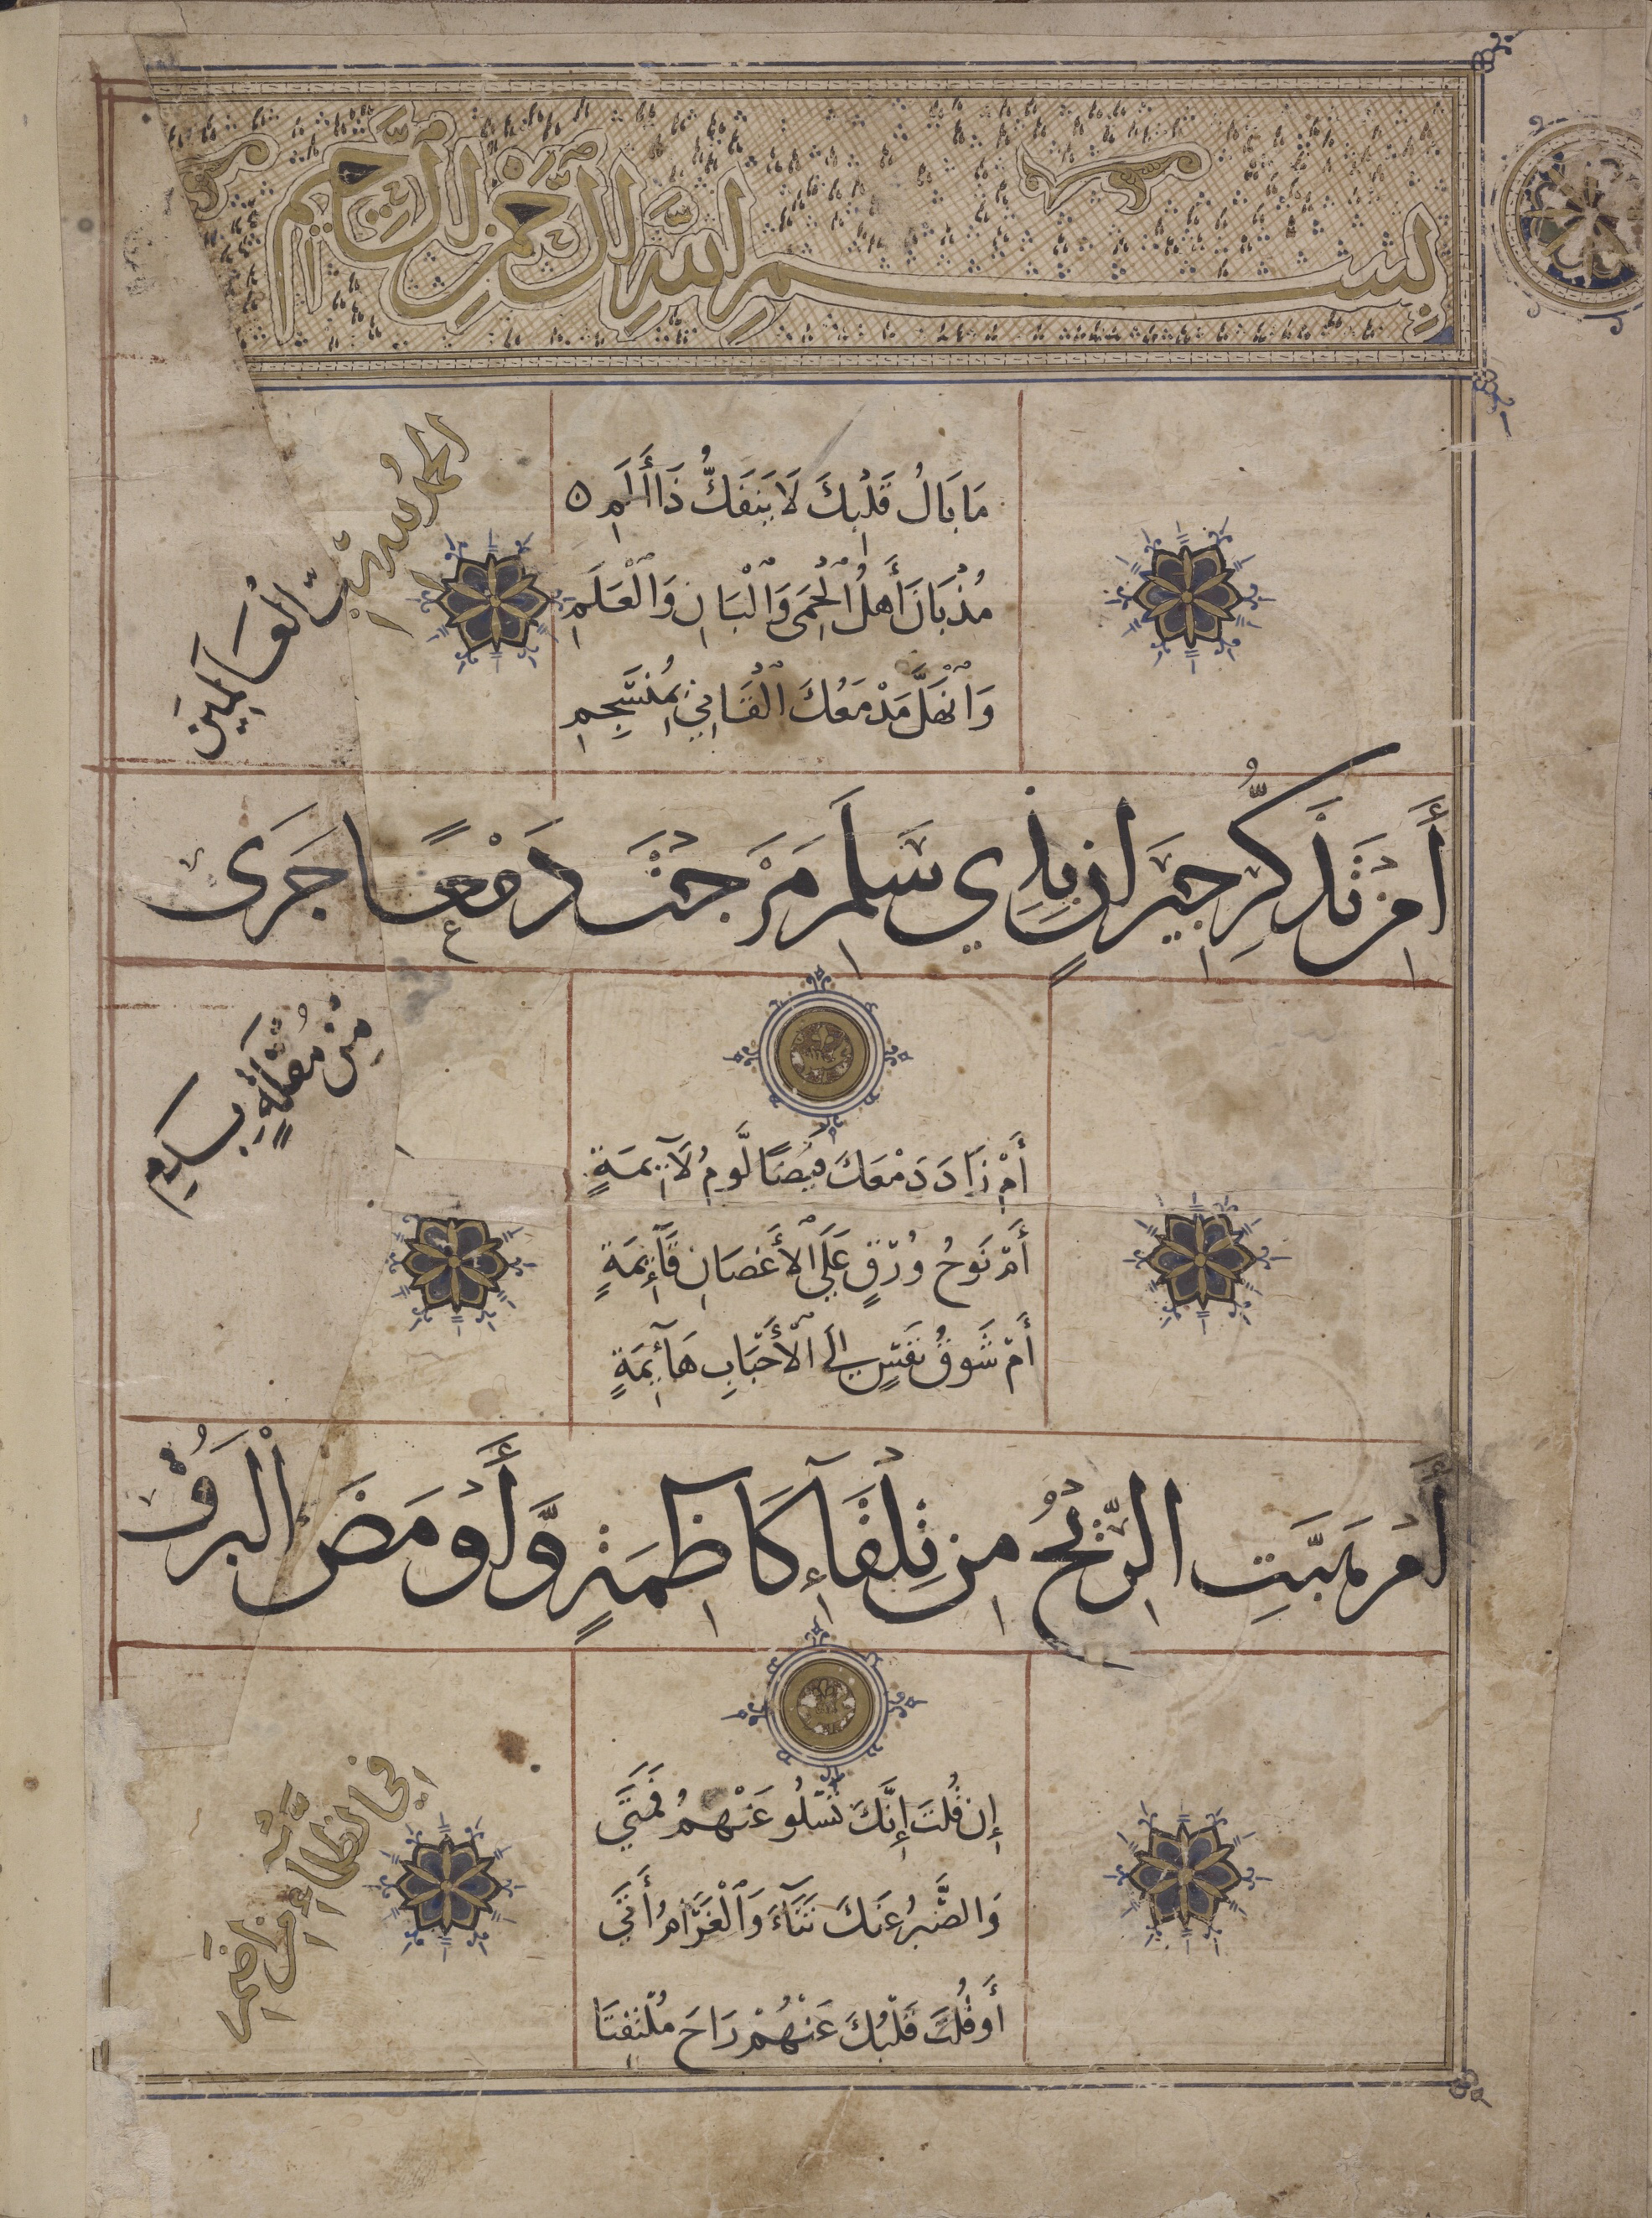 بِسْمِ اللهِ الرَّحْمٰنِ الرَّحِيمِ
الحَمْدُ لله رَبِّ
الْعَالَمِينَ
مَا بَالُ قَلْبِكَ لَا يَنْفَكُّ ذَا أَلَمِ
مُذْ بَانَ أَهْلُ الْحِمَى وَالْبَانِ وَالْعَلَمِ
وَانْهَلَّ مَدْمَعُكَ الْقَانِي بِمُنْسَجِمِ
أَمِنْ تَذَكُّرِ جِيرَانٍ بِذِي سَلَمِ مَزَجْتَ دَمْعًا جَرَى
مِنْ مُقْلَةٍ بِدَمِ
أَمْ زَادَ دَمْعَكَ فَيْضًا لَوْمُ لَآئِمَةٍ
أَمْ نَوْحُ وُرْقٍ عَلَى الْأَغْصَانِ قَآئِمَةٍ
أَمْ شَوْقُ نَفْسٍ إِلَى الْأَحْبَابِ هَآئِمَةٍ
أَمْ هَبَّتِ الرِّيْحُ مِنْ تِلْقَآءِ كَاظِمَةٍ وَّأَوْمَضَ الْبَرْقُ
فِي الظَّلْمَآءِ مِنْ إِضَمِ
إِنْ قُلْتَ إِنَّكَ تَسْلُو عَنْهُمُ فَمَتَى
وَالصَّبْرُ عَنْكَ تَنَآءَ وَالْغَرَامُ أَتَى
أَوْ قُلْتَ قَلْبُكَ عَنْهُمْ رَاحَ مُلْتَفِتَا